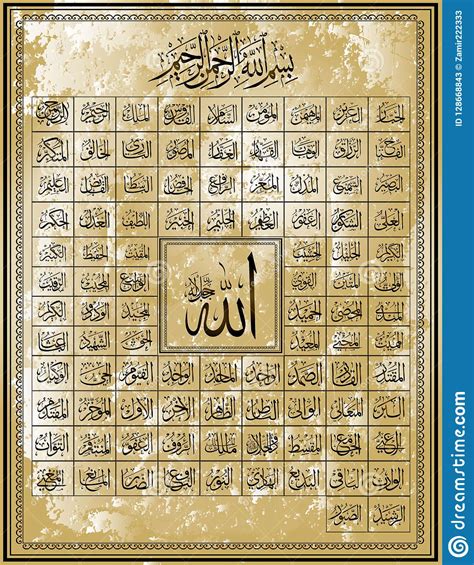 بسم الله الرحمن الرحيم
الجبار العزيز المهيمن المؤمن السلام القدوس الملك الرحيم الرحمن
الفتاح الرزاق الوهاب القهار الغفار المصور البارئ الخالق المتكبر
البصير السميع المذل المعز الخافض الباسط القابض العليم
العلي الشكور الغفور العظيم الخبير اللطيف العدل الحكم
الجليل الحسيب المقيت الحفيظ الكبير
الله جل جلاله
المتين القوي الواسع المجيب الرقيب
المجيد الودود
المميت المحيي المعيد الشهيد الباعث
المقتدر القادر الصمد الواحد الماجد الواجد القيوم الحي
البر المتعالي الوالي الباطن الظاهر الآخر الأول المؤخر المقدم
الغني الجامع المقسط الرؤوف العفو المنتقم التواب
الوارث الباقي البديع الهادي النور النافع المانع
الرشيد الصبور
dreamstime.com
ID 128668843 © Zamir222333